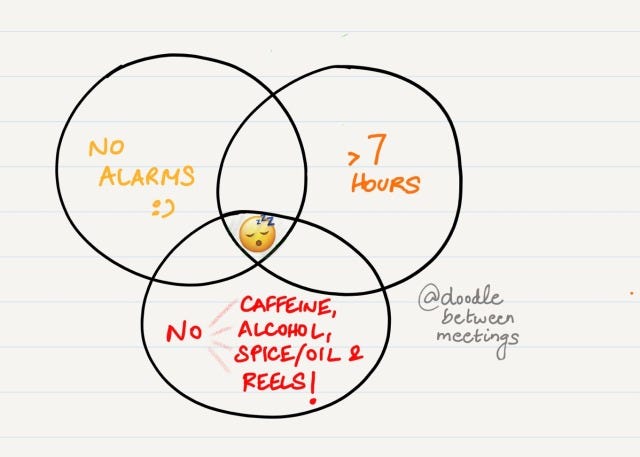 NO
ALARMS
:)
> 7
HOURS
NO
CAFFEINE,
ALCOHOL,
SPICE/OIL &
REELS!
@doodle
between
meetings